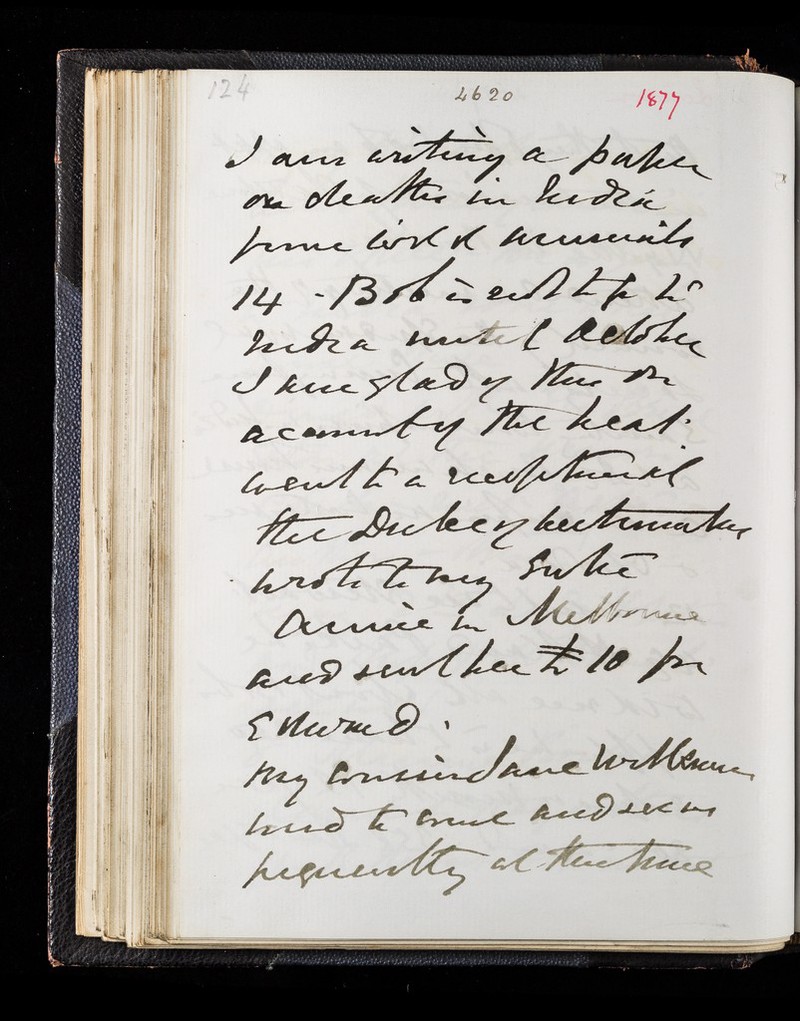 124 4620 1877
I am writing a paper
on deaths in India
from wild animals
14 - Bob is not to go to
India until October
I am glad of this on
account of the heat.
went to a reception at
the Duke of Westminster
wrote to my
Annie in Melbourne
and sent her £10 for
Edward.
my cousin Jane Williams
used to come and see us
frequently at this time